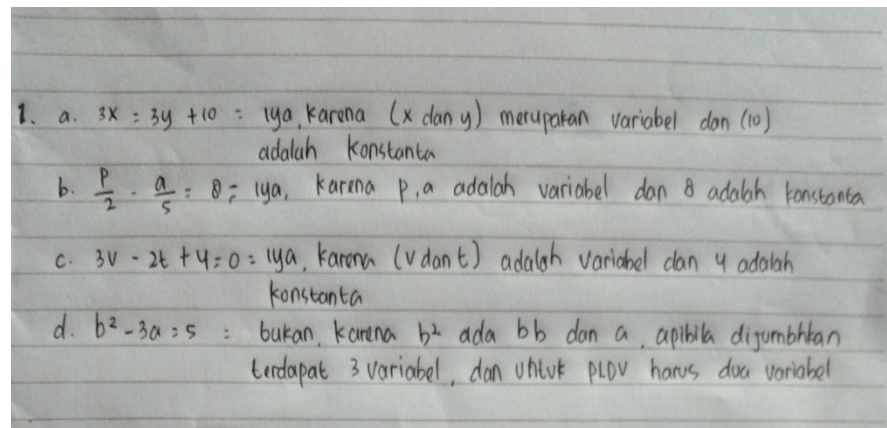 1. a. 3x = 3y + 10 = iya, karena (x dan y) merupakan variabel dan (10)
adalah konstanta
b. p/2 - a/5 = 8 = iya, karena p, a adalah variabel dan 8 adalah konstanta
c. 3v - 2t + 4 = 0 = iya, karena (v dan t) adalah variabel dan 4 adalah
konstanta
d. b² - 3a = 5 = bukan, karena b² ada bb dan a, apibila dijumbhkan
terdapat 3 variabel, dan untuk PLDV harus dua variabel